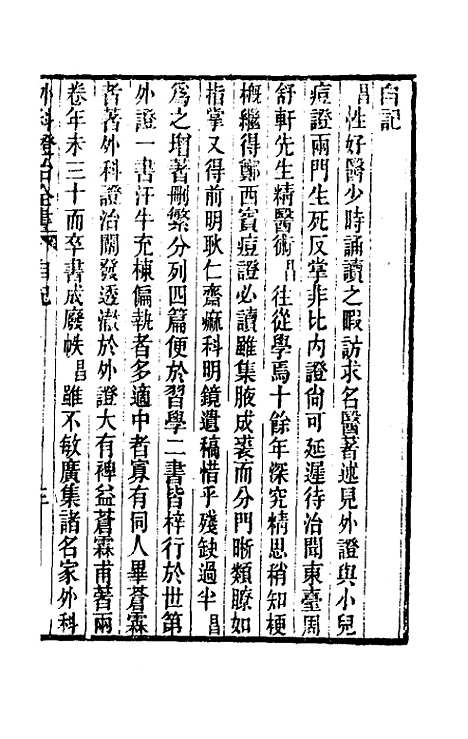 自記
昌性好醫少時誦讀之暇訪求名醫著述見外證與小兒
痘證兩門生死反掌非比內證尙可延遲待治聞東臺周
舒軒先生精醫術昌往從學焉十餘年深究精思稍知梗
概繼得鄭西賓痘證必讀雖集腋成裘而分門晰類瞭如
指掌又得前明耿仁齋痲科明鏡遺稿惜乎殘缺過半昌
爲之增著刪繁分列四篇便於習學二書皆梓行於世第
外證一書汗牛充棟偏執者多適中者寡有同人畢蒼霖
者著外科證治闡發透澈於外證大有裨益蒼霖甫著兩
卷年未三十而卒書成廢帙昌雖不敏廣集諸名家外科
外科證治全書 自記